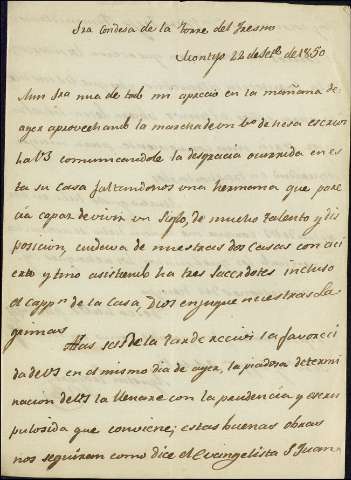 Sra Condesa de la Torre del Fresno
Montijo 22 de Setbe. de 1850
Muy Sra mia de todo mi aprecio en la mañana de
ayer aprovechando la marcha de un de hesa escrivi
ha V.S comunicandole la desgracia ocurrida en es
ta su casa faltandonos una hermana que pare
cia capaz de vivir un siglo, de mucho talento y dis
posicion, cuidava de nuestras dos casas con aci
erto y tino asistiendo ha tres sacerdotes incluso
el cappn. de la casa, Dios enjugue nuestras la
grimas
Alas seis de la tarde recivi la favoreci
da de VS en el mismo dia de ayer, la piadosa determi
nacion de VS la llenare con la prudencia y escru
pulosida que conviene; estas buenas obras
nos seguiran como dice el Evangelista S Juan